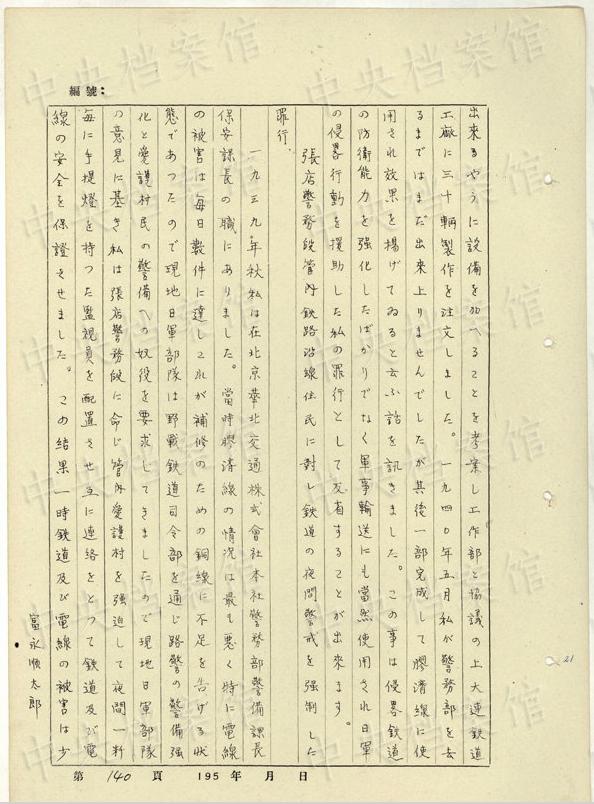 編號：
出來るやうに設備を加へることを考案し工作部と協議の上大連鉄道
工廠に三十輌製作を注文しました。一九四〇年五月私が警務部を去
るまではまだ出来上りませんでしたが其後一部完成して膠済線に使
用され効果を揚げてゐると云ふ話を訊きました。この事は侵畧鉄道
の防衛能力を強化したばかりでなく軍事輸送にも當然使用され日軍
の侵畧行動を援助した私の罪行として反省することが出来ます。
張店警務段管内鉄路沿線住民に対し鉄道の夜間警戒を強制した
罪行.
一九三九年秋私は在北京華北交通株式會社本社警務部警備課長
保安課長の職にありました。當時膠済線の情況は最も悪く特に電線
の被害は毎日数件に達しこれが補修のための銅線に不足を告げる状
態であつたので現地日軍部隊は野戰鉄道司令部を通じ路警の警備強
化と愛護村民の警備への奴役を要求してきましたので現地日軍部隊
の意見に基き私は張店警務段に命じ管内愛護村を強迫して夜間一粁
毎に手提燈を持つた監視員を配置させ互に連絡をとつて鉄道及び電
線の安全を保證させました。この結果一時鉄道及び電線の被害は少
富永順太郎
第 140 頁 195 年 月 日
21
中央档案馆